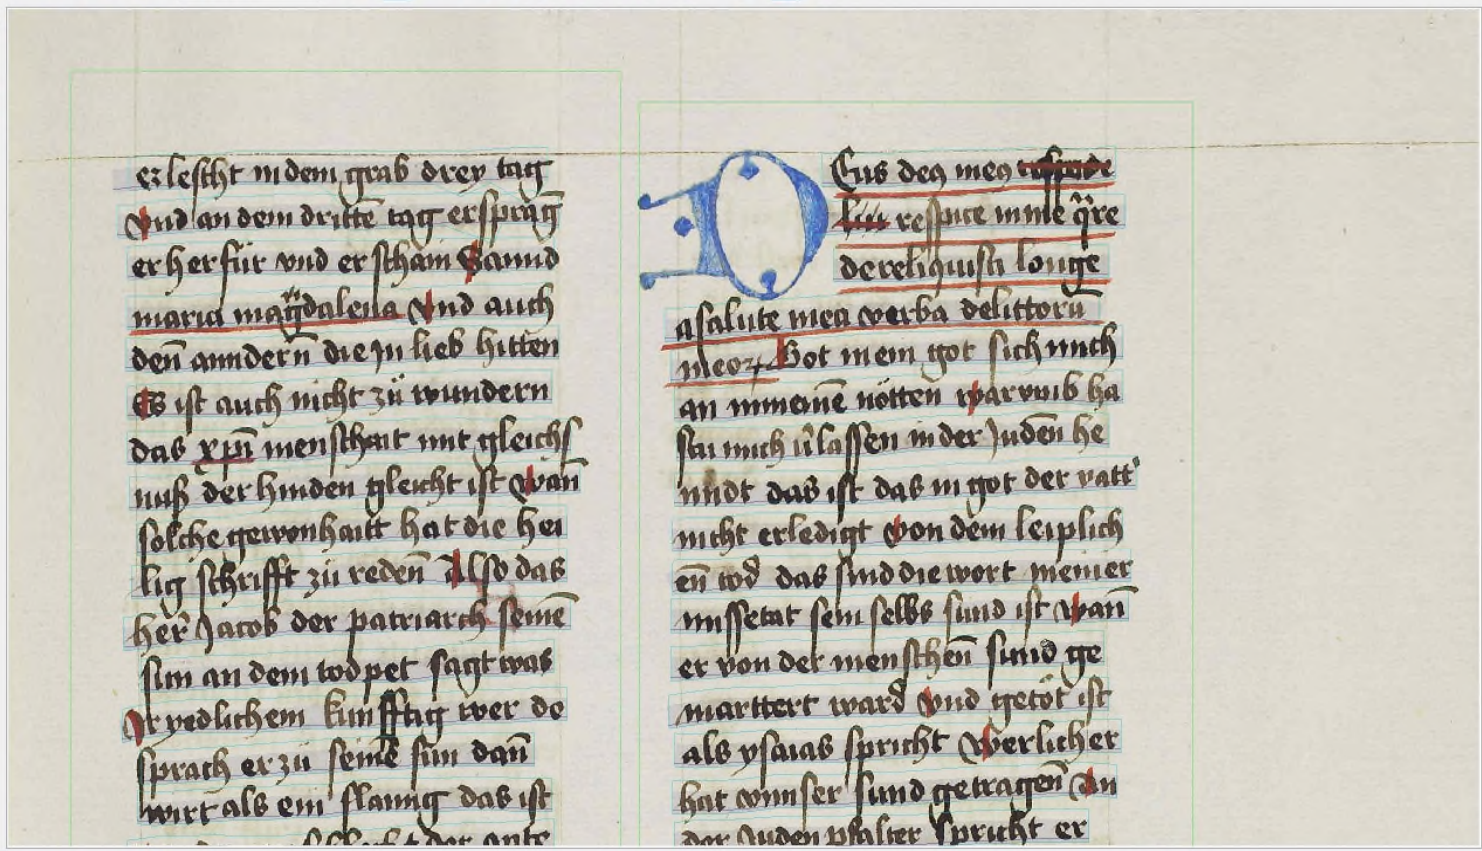 erlescht in dem grab drey tag
Vnd an dem drittē tag ersprāg
er herfür vnd erschain Sannd
maria magdalena Vnd auch
den̄ anndern̄ die Jn lieb hitten
Es ist auch nicht zů wundern
das xp̄i menschait mit gleichs
nuß der hinden gleicht ist Wan̄
solche gewonhaitt hat die hei
lig schrifft zů reden̄ Also das
her Jacob der patriarch seinē
sun an dem todpet sagt was
Jr yedlichem kunfftig wer do
sprach er zů seinē sun dan̄
wirt als ein slanng das ist
Deus deꝰ meꝰ
respice in me q̄re
dereliquisti longe
a salute mea verba delittorū
meoꝝ Got mein got sich mich
an in meinē nötten Warumb ha
stu mich v̄lassen in der Juden he
nndt das ist das in got der vatt'
nicht erledigt Von dem leiplich
en̄ tod das sind die wort meiner
missetat sein selbs sund ist Wan̄
er von der menschen̄ sund ge
marttert ward Vnd getöt ist
als ysaias spricht Werlich er
hat vnnser sund getragen̄ An
der Juden psalter spricht er